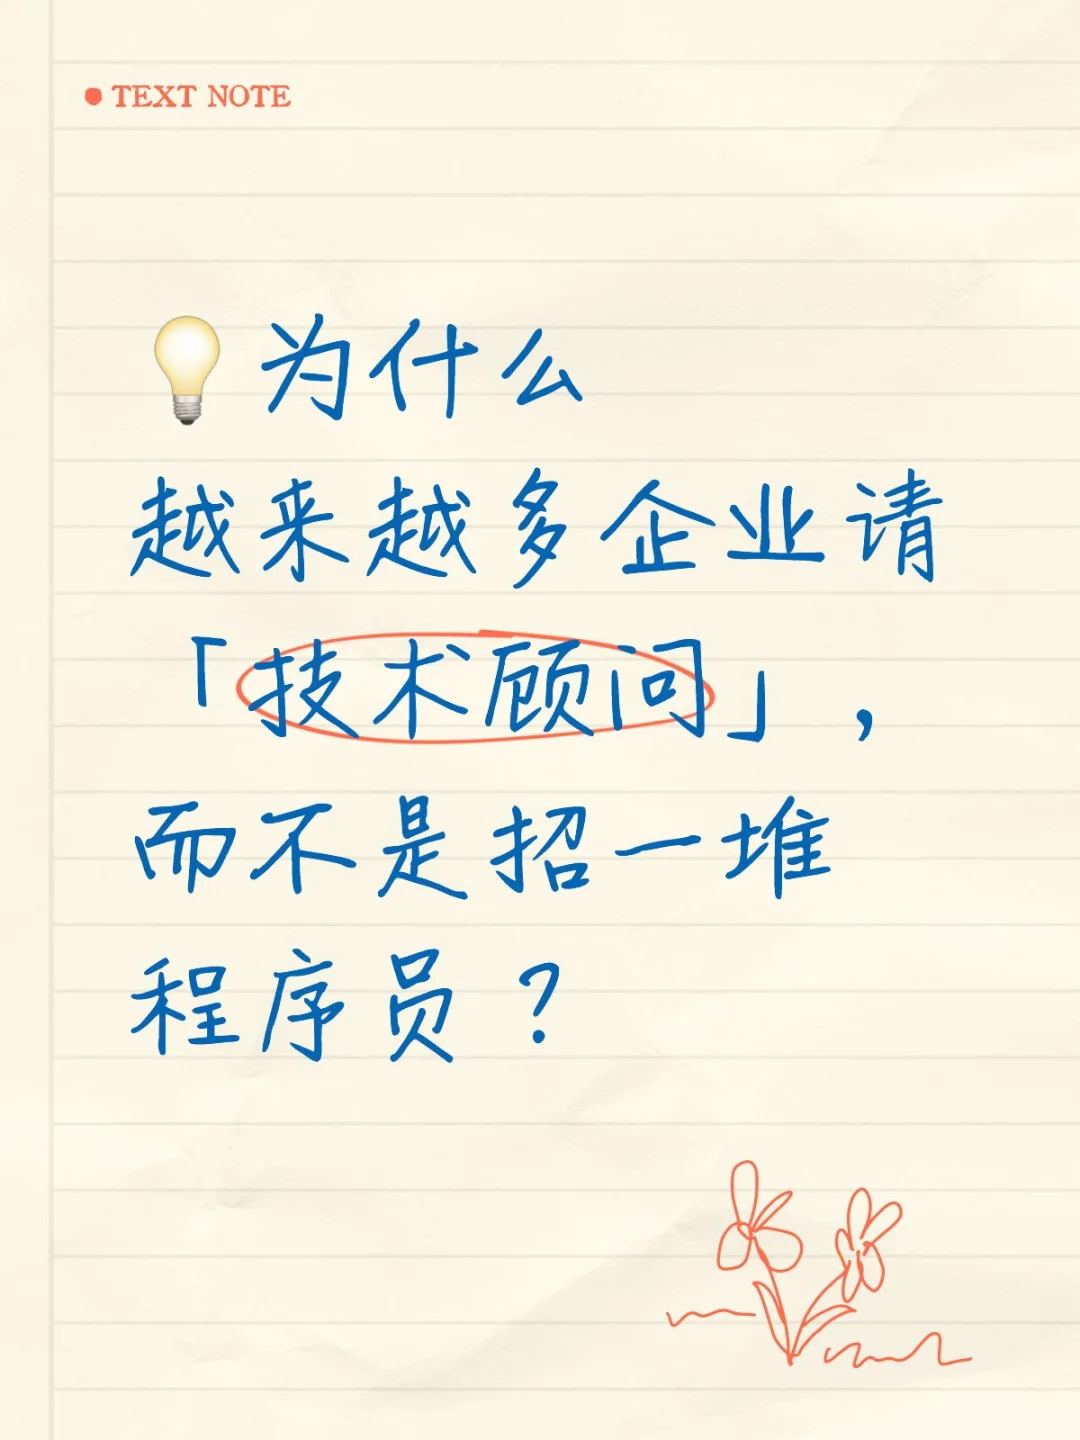 TEXT NOTE
💡为什么
越来越多企业请
「技术顾问」，
而不是招一堆
程序员？